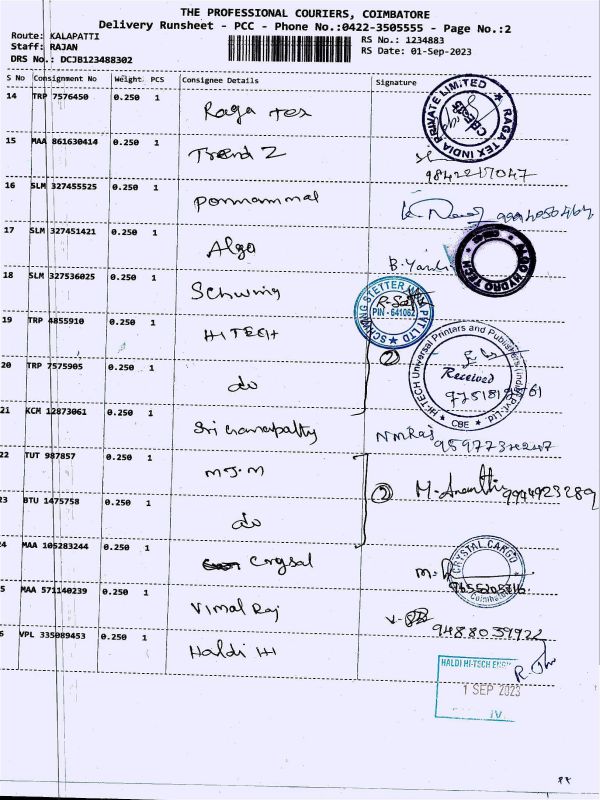 THE PROFESSIONAL COURIERS, COIMBATORE
Delivery Runsheet - PCC - Phone No.:0422-3505555 - Page No.:2
Route: KALAPATTI
Staff: RAJAN
DRS No.: DCJB123488302
RS No.: 1234883
RS Date: 01-Sep-2023
S No Consignment No Weight PCS Consignee Details Signature
14 TRP 7576450 0.250 1 Raga tex
RAGA TEX INDIA PRIVATE LIMITED
15 MAA 861630414 0.250 1 Trend Z
16 SLM 327455525 0.250 1 Ponnammal
17 SLM 327451421 0.250 1 Algo
HYDRO TECH
18 SLM 327536025 0.250 1 Schwing
SCHWING STETTER PVT LTD
PIN - 641062
19 TRP 4855910 0.250 1 HITECH
20 TRP 7575905 0.250 1 do
2
Hi-TECH Universal Printers and Publishers India Pvt. Ltd
CBE
Received
21 KCM 12873061 0.250 1 Sri
NMRaj
22 TUT 987857 0.250 1 M.J.M
23 BTU 1475758 0.250 1 do
2 M. Ananthi 9944923289
24 MAA 105283244 0.250 1
CRYSTAL CARGO
Coimbatore
5 MAA 571140239 0.250 1 Vimal Raj
9488039922
6 VPL 335089453 0.250 1 Haldi Hi
HALDI HI-TECH ENGG
1 SEP 2023
IV